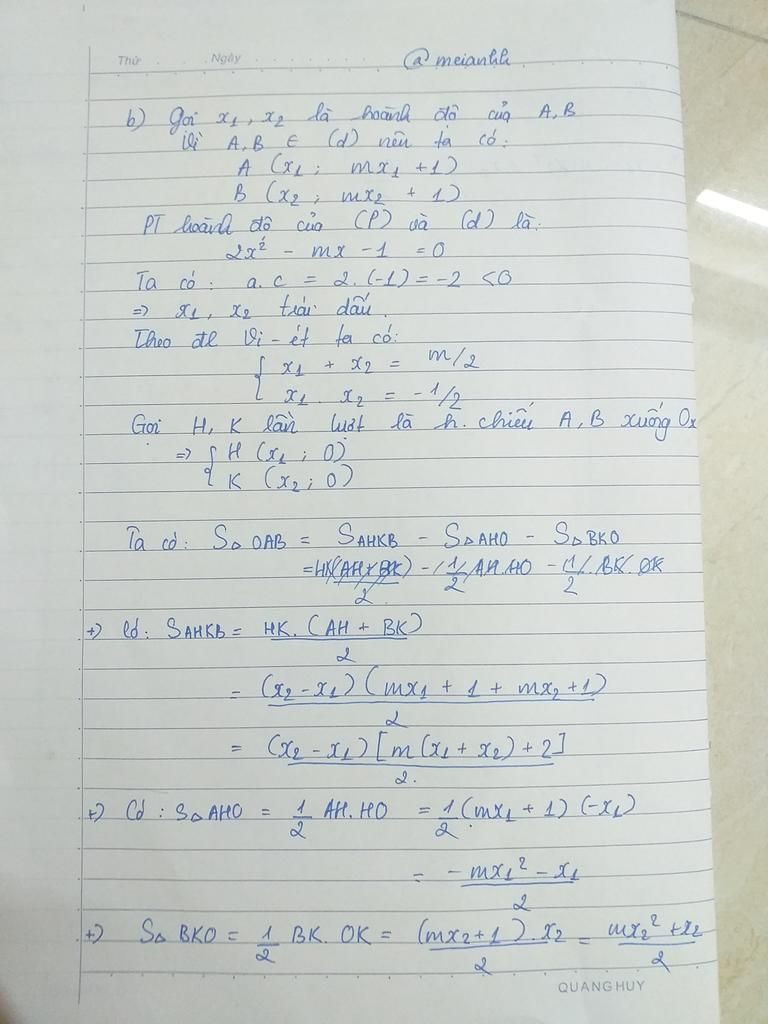 Thứ Ngày @meianhh
b) Gọi x₁, x₂ là hoành độ của A, B
Vì A, B ∈ (d) nên ta có:
A (x₁ ; mx₁ + 1)
B (x₂ ; mx₂ + 1)
PT hoành độ của (P) và (d) là:
2x² - mx - 1 = 0
Ta có: a.c = 2.(-1) = -2 < 0
=> x₁, x₂ trái dấu.
Theo đl Vi-ét ta có:
{ x₁ + x₂ = m/2
x₁ . x₂ = -1/2
Gọi H, K lần lượt là h. chiếu A, B xuống Ox
=> { H (x₁ ; 0)
K (x₂ ; 0)
Ta có: S△OAB = SAHKB - S△AHO - S△BKO
= HK(AH+BK)/2 - 1/2 AH.HO - 1/2 . BK.OK
+) Có: SAHKB = HK.(AH + BK)/2
= (x₂-x₁)(mx₁ + 1 + mx₂ + 1)/2
= (x₂-x₁)[m(x₁ + x₂) + 2]/2.
+) Có: S△AHO = 1/2 AH.HO = 1/2 (mx₁ + 1)(-x₁)
= -mx₁² - x₁/2
+) S△BKO = 1/2 BK.OK = (mx₂+1).x₂/2 = mx₂² + x₂/2
QUANG HUY